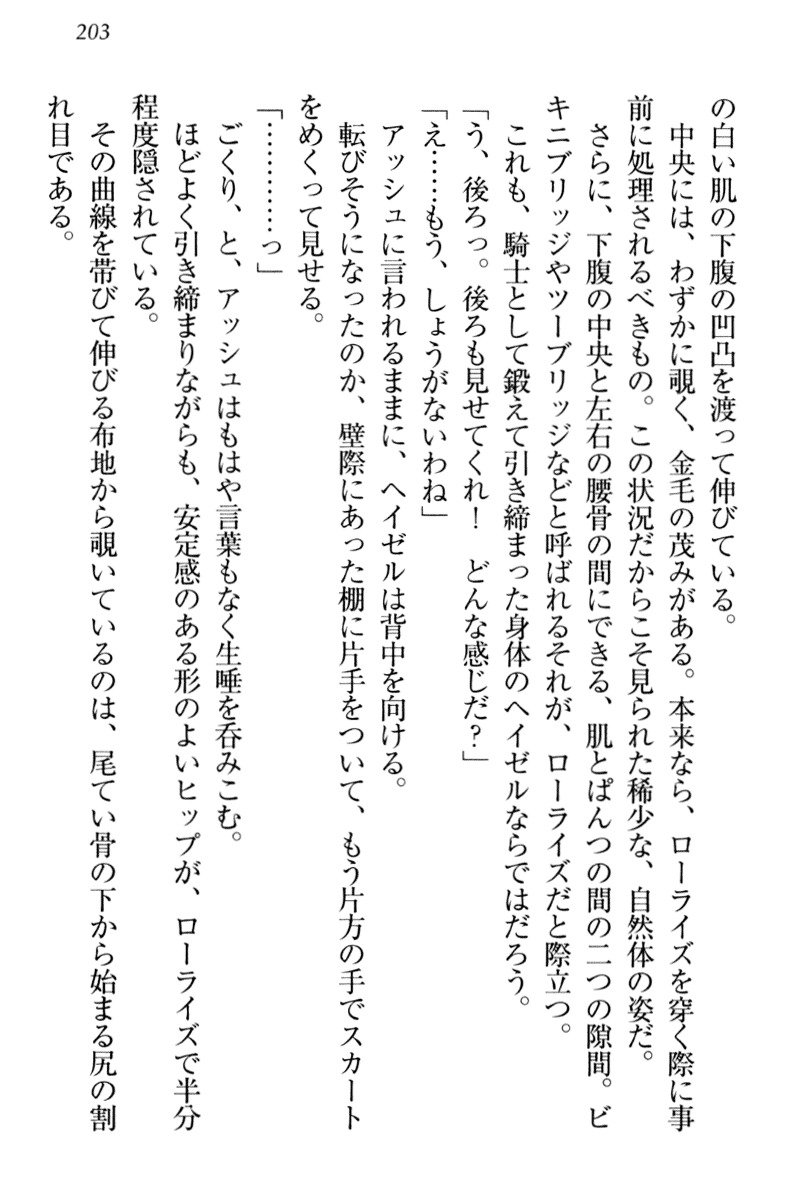 203
の白い肌の下腹の凹凸を渡って伸びている。
中央には、わずかに覗く、金毛の茂みがある。本来なら、ローライズを穿く際に事
前に処理されるべきもの。この状況だからこそ見られた稀少な、自然体の姿だ。
さらに、下腹の中央と左右の腰骨の間にできる、肌とぱんつの間の二つの隙間。ビ
キニブリッジやツーブリッジなどと呼ばれるそれが、ローライズだと際立つ。
これも、騎士として鍛えて引き締まった身体のヘイゼルならではだろう。
「う、後ろっ。後ろも見せてくれ!　どんな感じだ?」
「え……もう、しょうがないわね」
アッシュに言われるままに、ヘイゼルは背中を向ける。
転びそうになったのか、壁際にあった棚に片手をついて、もう片方の手でスカート
をめくって見せる。
「…………っ」
ごくり、と、アッシュはもはや言葉もなく生唾を呑みこむ。
ほどよく引き締まりながらも、安定感のある形のよいヒップが、ローライズで半分
程度隠されている。
その曲線を帯びて伸びる布地から覗いているのは、尾てい骨の下から始まる尻の割
れ目である。